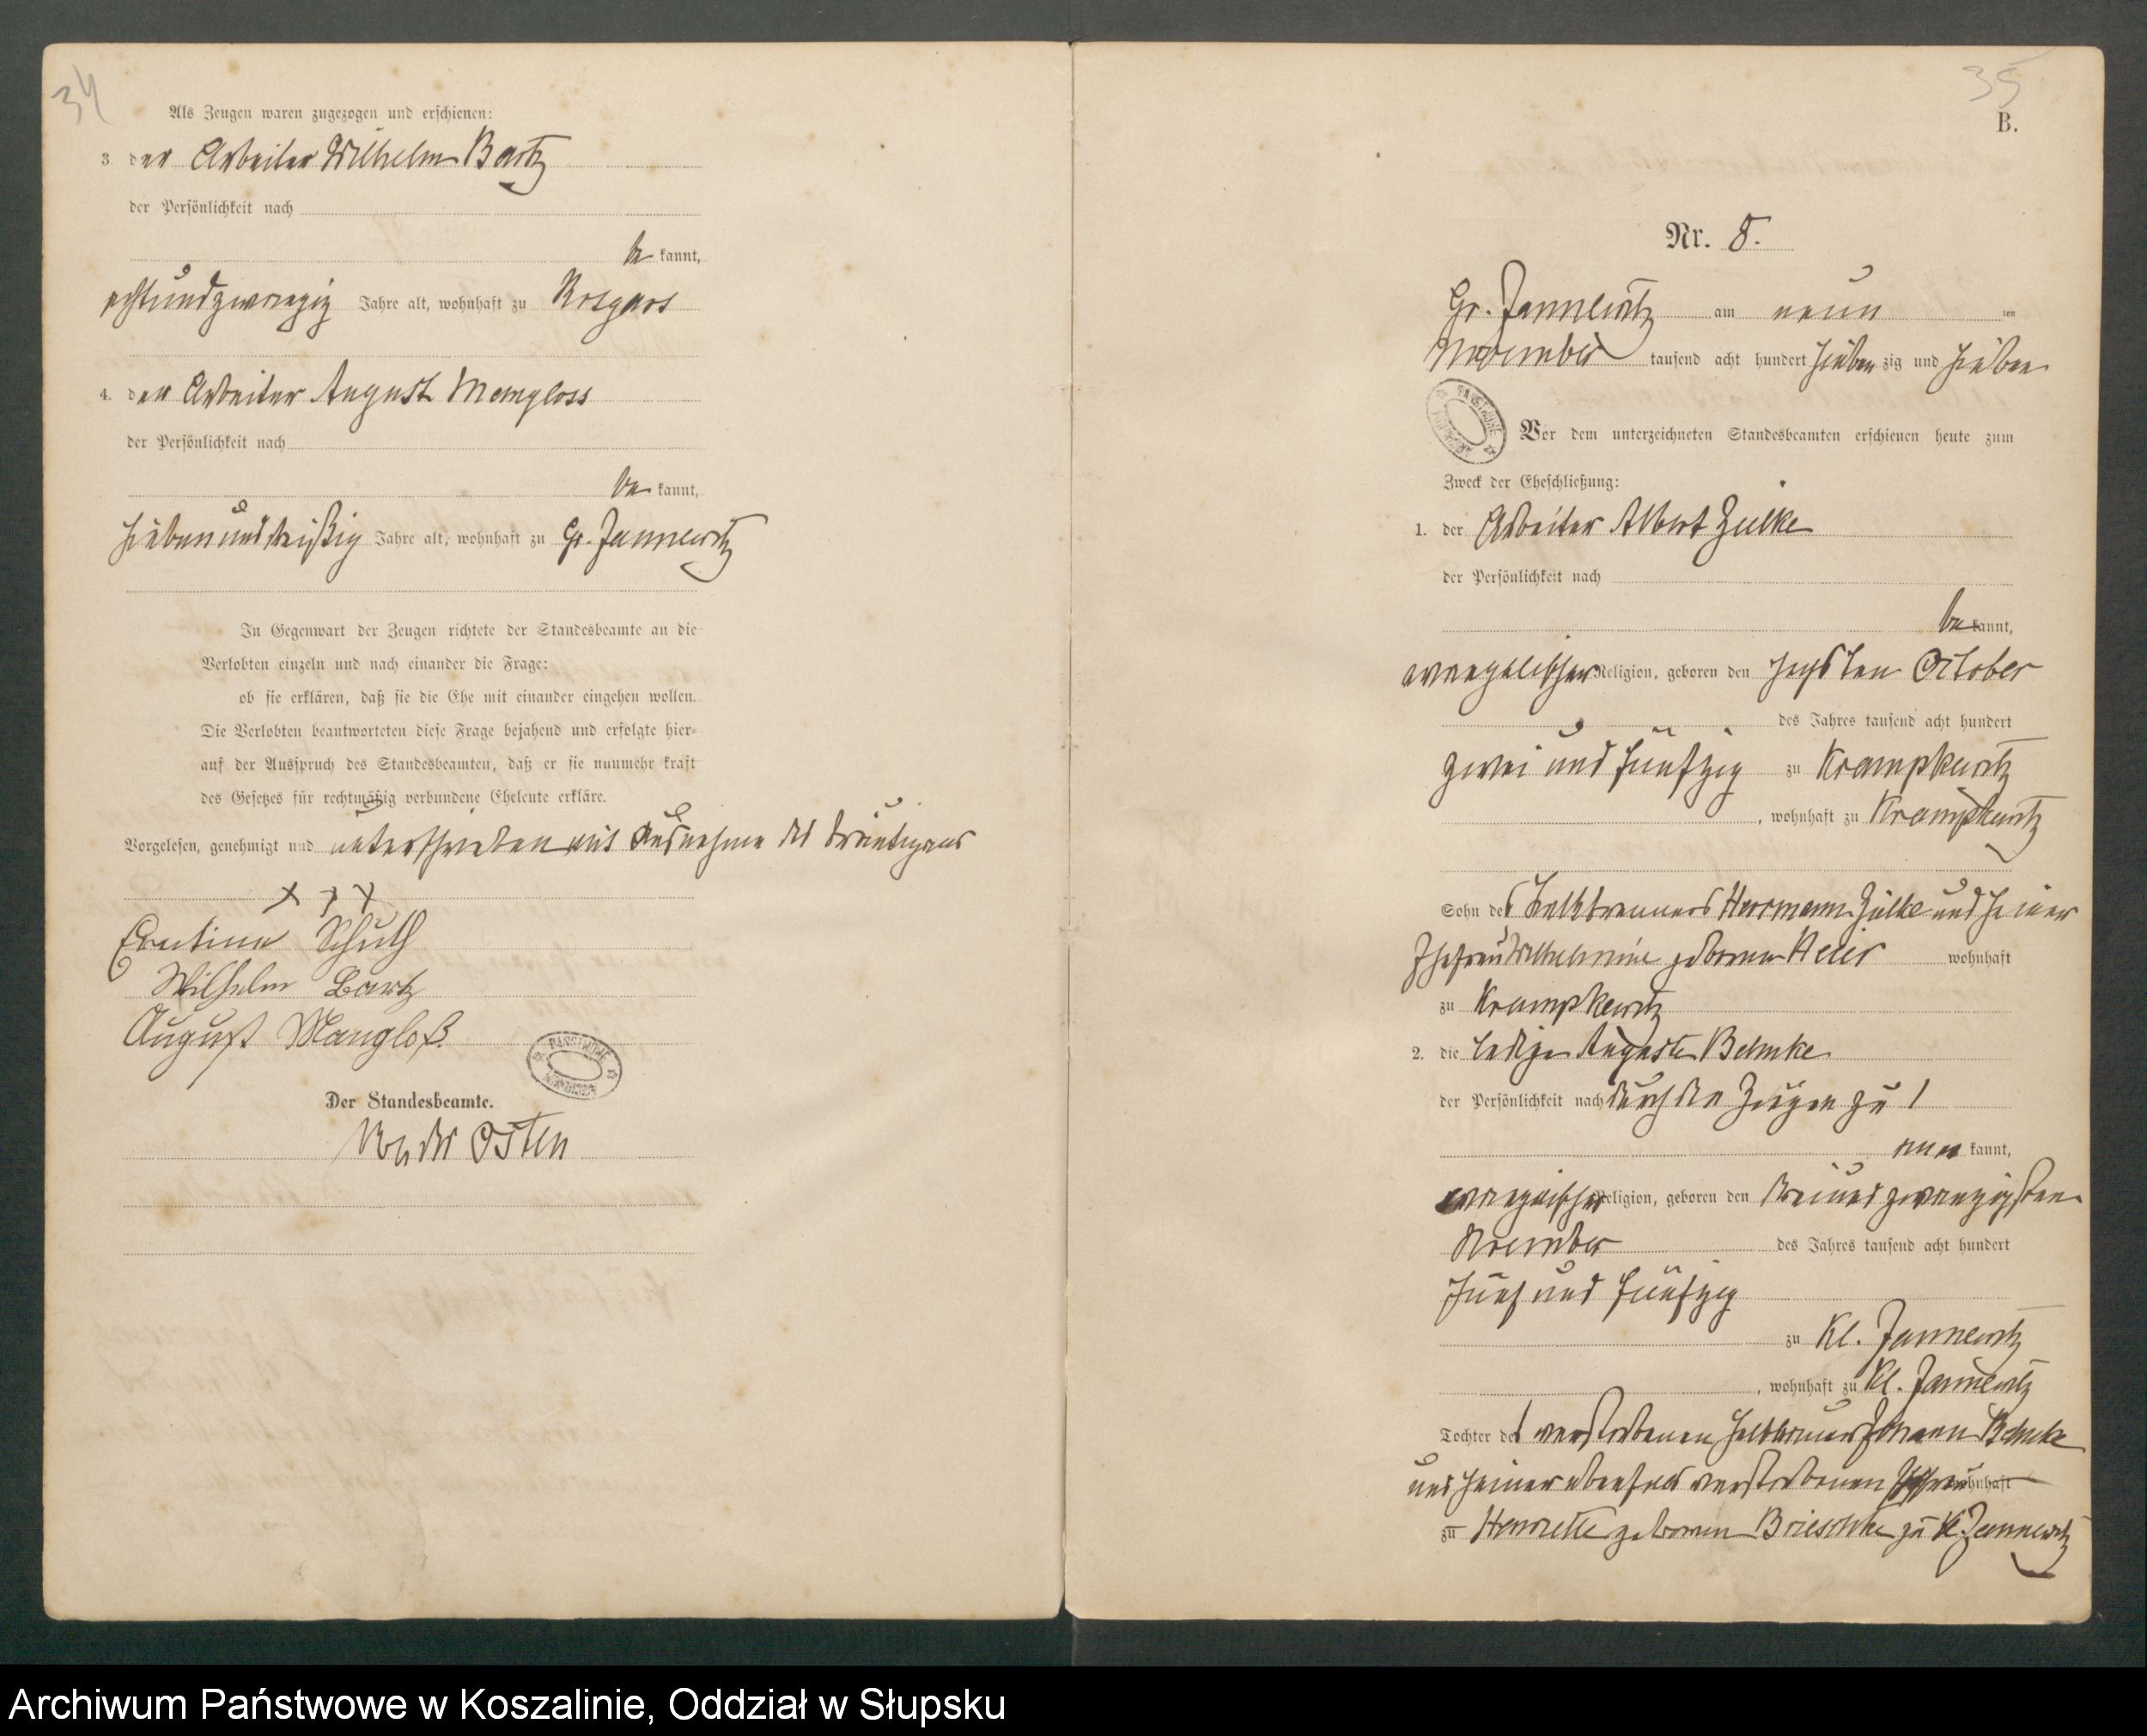 34
Als Zeugen waren zugezogen und erschienen:
3. der Arbeiter Wilhelm Bartz
der Persönlichkeit nach
be kannt,
achtundzwanzig Jahre alt, wohnhaft zu Rosgars
4. der Arbeiter August Mangloss
der Persönlichkeit nach
be kannt,
siebenunddreißig Jahre alt, wohnhaft zu Gr. Jannewitz
In Gegenwart der Zeugen richtete der Standesbeamte an die
Verlobten einzeln und nach einander die Frage:
ob sie erklären, daß sie die Ehe mit einander eingehen wollen.
Die Verlobten beantworteten diese Frage bejahend und erfolgte hier-
auf der Ausspruch des Standesbeamten, daß er sie nunmehr kraft
des Gesetzes für rechtmäßig verbundene Eheleute erkläre.
Vorgelesen, genehmigt und unterschrieben mit Ausnahme des Bräutigams
x x x
Schuth
Wilhelm Bartz
August Mangloß.
Der Standesbeamte.
Von der Osten
35
B.
Nr. 8.
Gr. Jannewitz am neun ten
November tausend acht hundert sieben zig und sieben
Vor dem unterzeichneten Standesbeamten erschienen heute zum
Zweck der Eheschließung:
1. der Arbeiter Albert Zülke
der Persönlichkeit nach
be kannt,
evangelischer Religion, geboren den sechsten October
des Jahres tausend acht hundert
zwei und fünfzig zu Krampkewitz
, wohnhaft zu Krampkewitz
Sohn des Herrmann Zülke und seiner
Ehefrau Wilhelmine geborenen wohnhaft
zu Krampkewitz
2. die ledige Auguste Behnke
der Persönlichkeit nach durch den Zeugen zu
aner kannt,
evangelischer Religion, geboren den dreiundzwanzigsten
November des Jahres tausend acht hundert
fünf und fünfzig
zu Kl. Jannewitz
, wohnhaft zu Kl. Jannewitz
Tochter des verstorbenen Halbbauer Johann Behnke
und seiner ebenfalls verstorbenen Ehefrau wohnhaft
zu Henriette geborenen Brieschke zu Kl. Jannewitz
Archiwum Państwowe w Koszalinie, Oddział w Słupsku